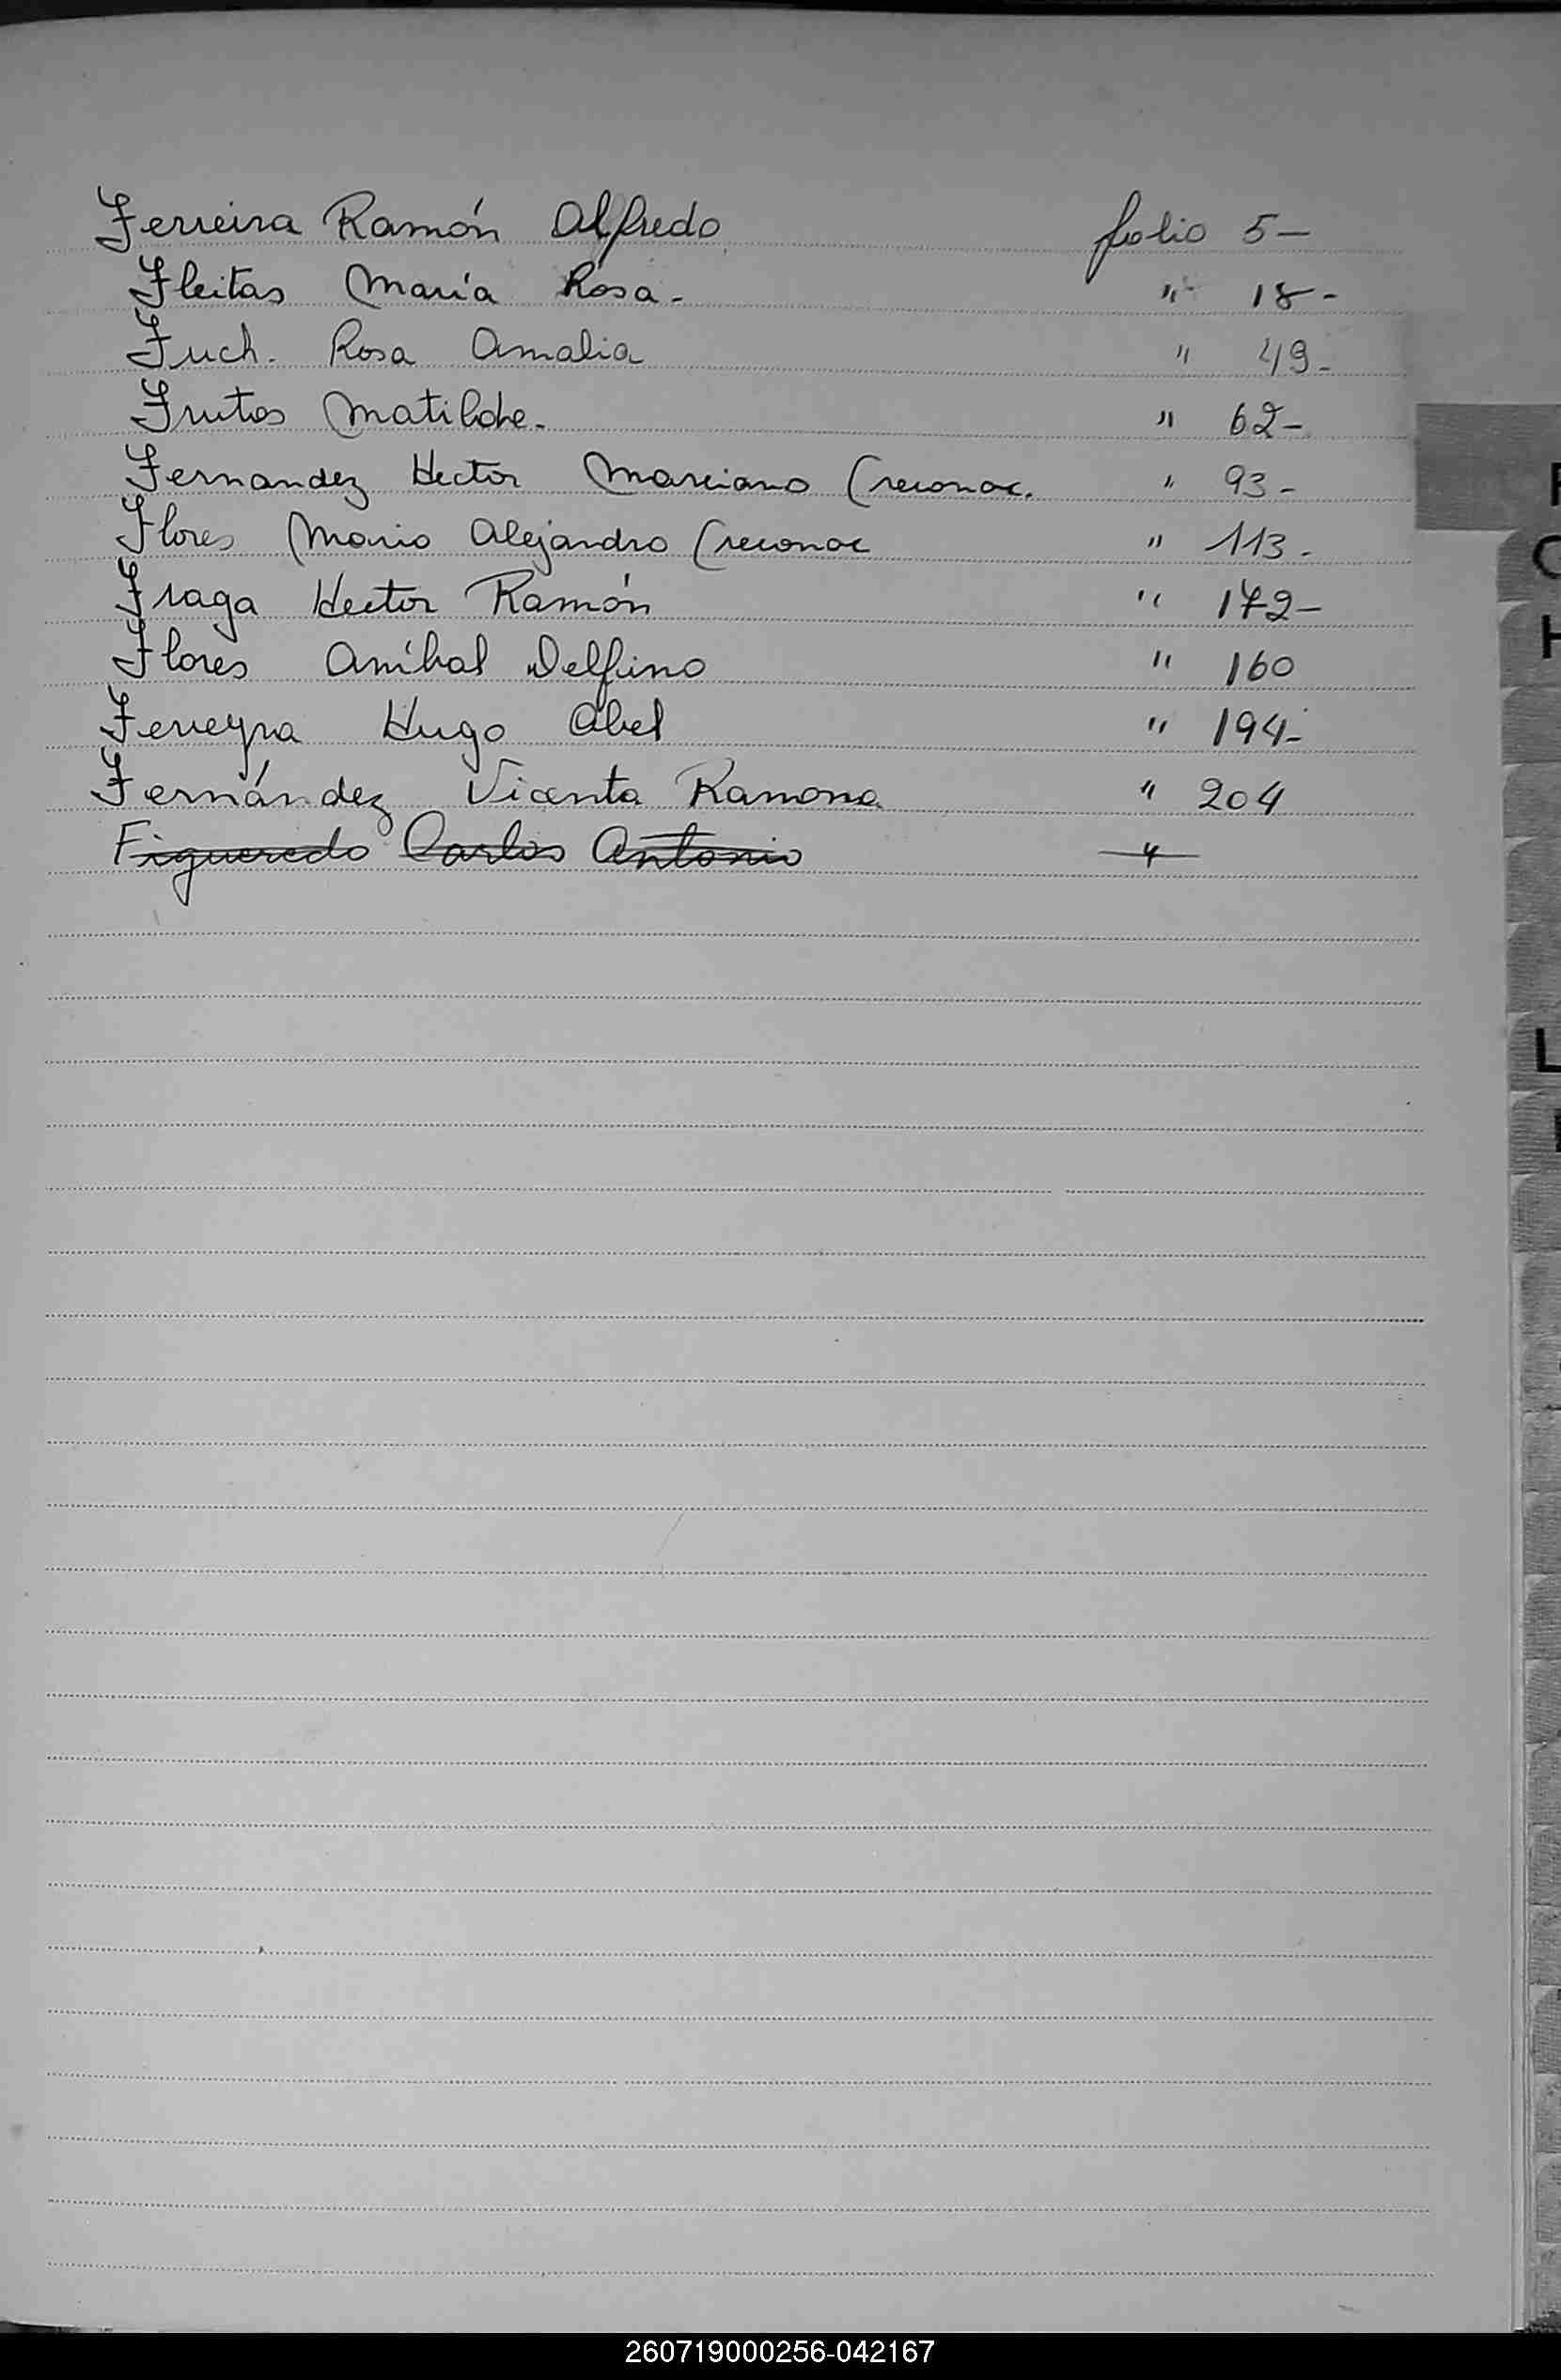 Ferreira Ramón Alfredo folio 5-
Fleitas María Rosa- " 18-
Fuch. Rosa Amalia " 49-
Frutos Matilde- " 62-
Fernandez Hector Marciano (reconoc. " 93-
Flores Mario Alejandro (reconoc " 113-
Fraga Hector Ramón " 172-
Flores Aníbal Delfino " 160
Ferreyra Hugo Abel " 194-
Fernández Vicenta Ramona " 204
Figueredo Carlos Antonio "
L
260719000256-042167